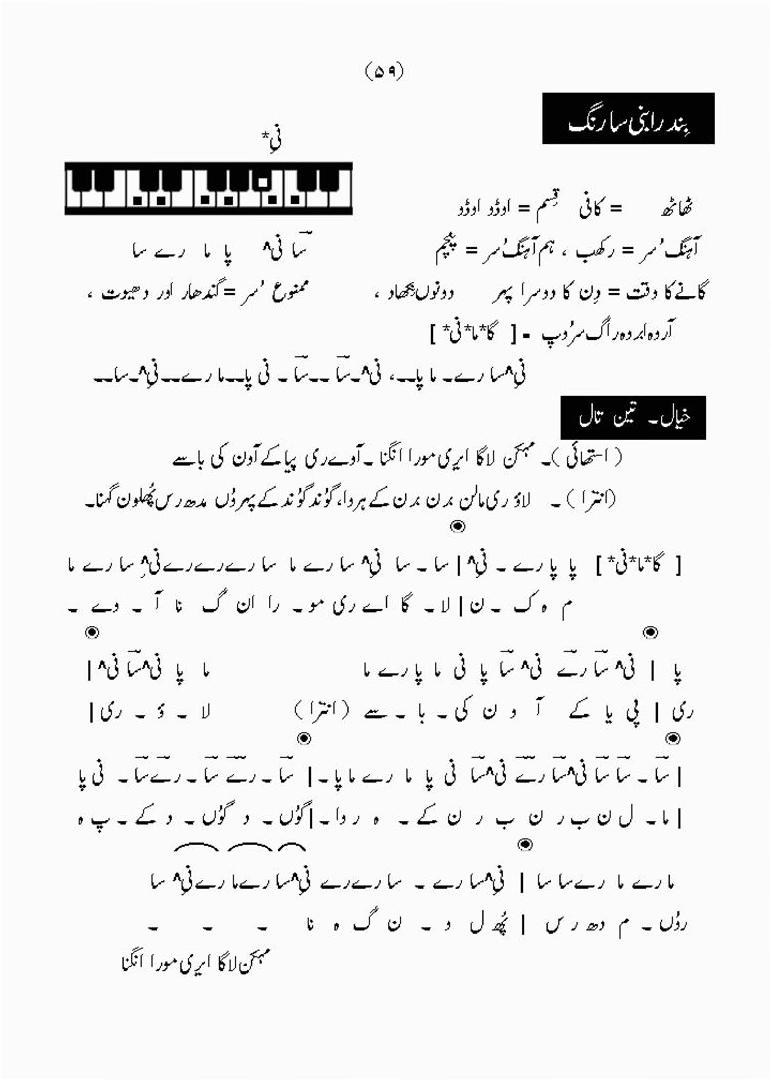 (۵۹)
بِندرابنی سارنگ
نیِ*
ٹھاٹھ = کافی قِسم = اوڈو اوڈو
آہنگ سُر = رکھب ، ہم آہنگ سُر = پنچم
سا نی^ پا ما رے سا
گانے کا وقت = دِن کا دوسرا پہر دونوں نکھاد ،
ممنوع سُر = گندھار اور دھیوت ،
آردہ ابردہ راگ سرُوپ - [ گا* ما* نی* ]
نیِ^سا رے۔ ما پا۔۔، نی^۔سا ۔۔سا ۔ نی پا۔۔ما رے۔۔نیِ^۔سا۔۔
خیال۔ تین تال
(استھائی)۔ مہکن لاگا ایری مورا انگنا ۔آوے ری پیا کے آون کی باسے
(انترا)۔ لاؤ ری مالن برن برن کے ہروا، گوُند گوُند کے پہروُں مدھ رس پھُلون گہنا۔
[ گا*ما*نی* ] پا پا رے ۔ نیِ^ | سا ۔ سا نیِ^ سا رے ما سا رے رے رے نیِ^ سا رے ما
م ہ ک ۔ ن | لا۔ گا اے ری مو۔ را ان گ نا آ ۔ وے ۔
پا | نی^ سا رے نی^ سا پا نی ما پا رے ما ما پا نی^سا نی^ |
ری | پی یا کے آ و ن کی۔ با ۔ سے (انترا) لا ۔ ؤ ۔ ری |
| سا ۔ سا سا نی^سا رے نی^سا نی پا ما رے ما پا۔ | سا ۔رے سا ۔رے سا۔ نی پا
| ما۔ ل ن ب ر ن ب ر ن کے ۔ ہ ر وا۔ | گوُں۔ د گوُں ۔ د کے ۔ پ ہ
ما رے ما رے سا سا | نیِ^سا رے ۔ سا رے رے نیِ^سا رے ما رے نیِ^ سا
روُں ۔ م دھ ر س | پھُ ل و ۔ ن گ ہ نا ۔ ۔ ۔
مہکن لاگا ایری مورا انگنا